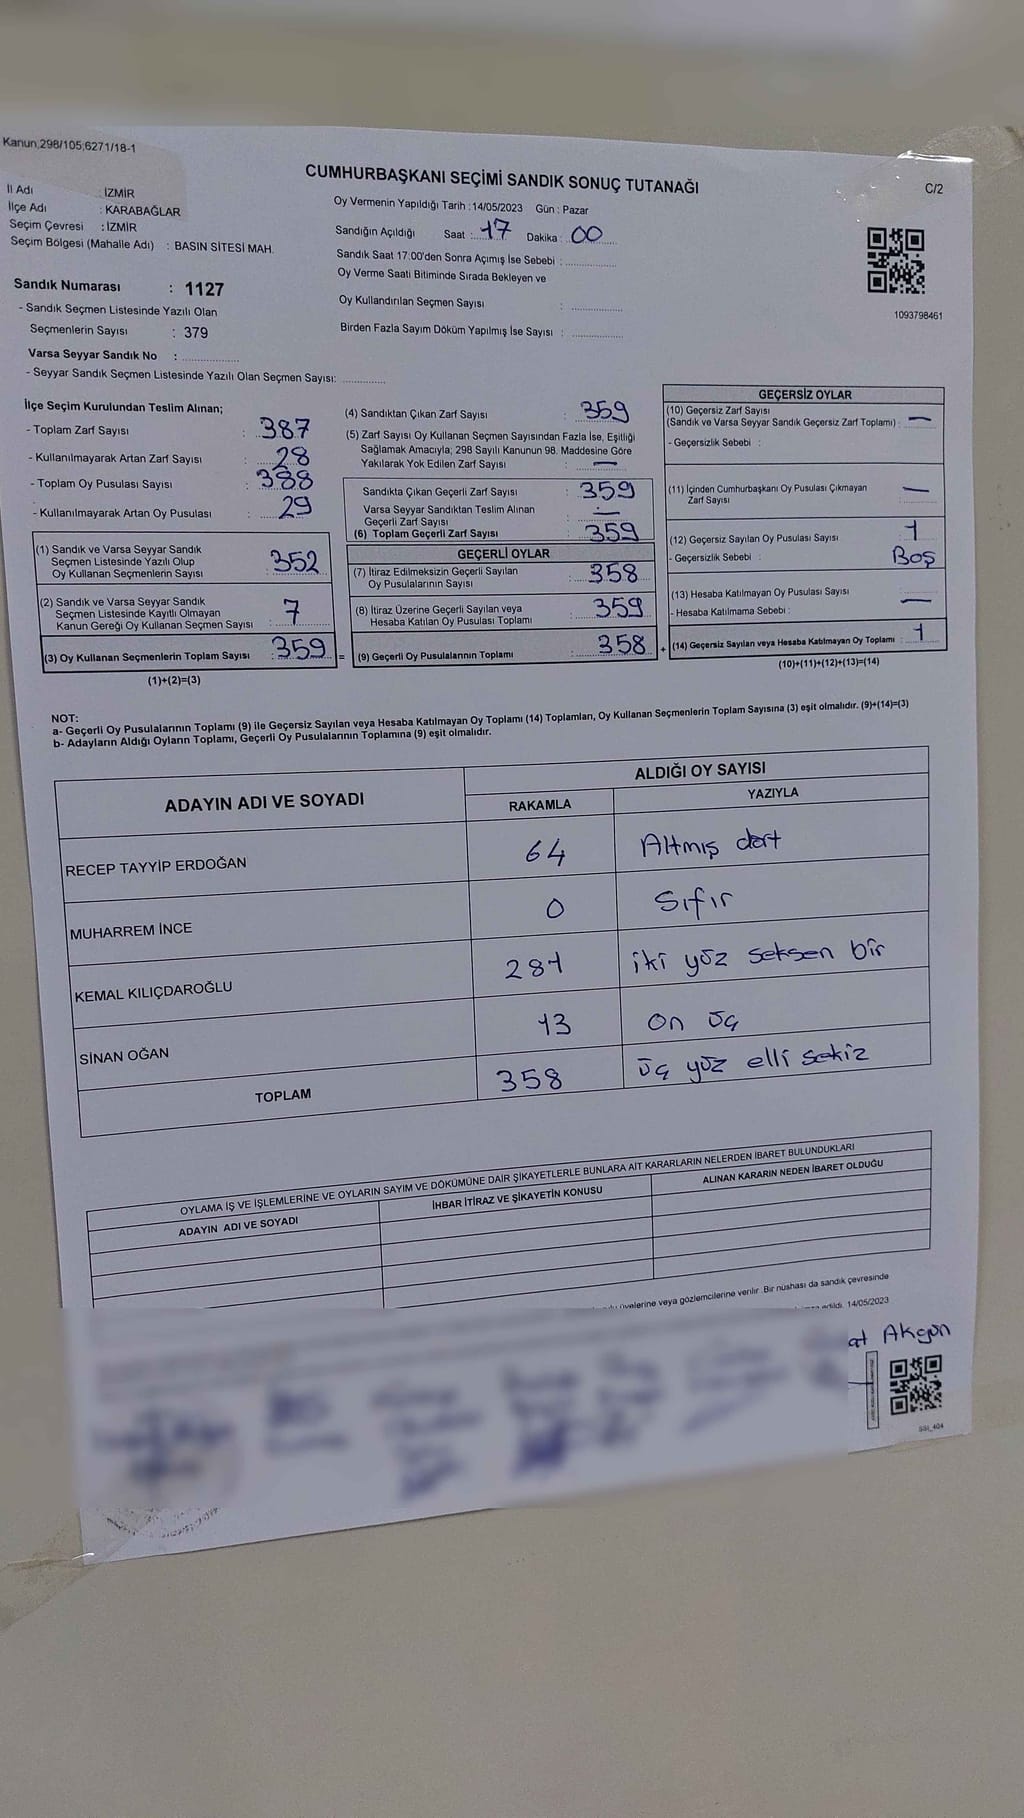 Kanun,298/105,6271/18-1
CUMHURBAŞKANI SEÇİMİ SANDIK SONUÇ TUTANAĞI
C/2
İl Adı : İZMİR
İlçe Adı : KARABAĞLAR
Seçim Çevresi : İZMİR
Seçim Bölgesi (Mahalle Adı) : BASIN SİTESİ MAH.
Oy Vermenin Yapıldığı Tarih : 14/05/2023 Gün : Pazar
Sandığın Açıldığı Saat : 17 Dakika : 00
Sandık Saat 17:00'den Sonra Açımış İse Sebebi :
Oy Verme Saati Bitiminde Sırada Bekleyen ve
Oy Kullandırılan Seçmen Sayısı :
Birden Fazla Sayım Döküm Yapılmış İse Sayısı :
1093798461
Sandık Numarası : 1127
- Sandık Seçmen Listesinde Yazılı Olan
Seçmenlerin Sayısı : 379
Varsa Seyyar Sandık No :
- Seyyar Sandık Seçmen Listesinde Yazılı Olan Seçmen Sayısı:
İlçe Seçim Kurulundan Teslim Alınan;
- Toplam Zarf Sayısı : 387
- Kullanılmayarak Artan Zarf Sayısı : 28
- Toplam Oy Pusulası Sayısı : 388
- Kullanılmayarak Artan Oy Pusulası : 29
(1) Sandık ve Varsa Seyyar Sandık
Seçmen Listesinde Yazılı Olup
Oy Kullanan Seçmenlerin Sayısı : 352
(2) Sandık ve Varsa Seyyar Sandık
Seçmen Listesinde Kayıtlı Olmayan
Kanun Gereği Oy Kullanan Seçmen Sayısı : 7
(3) Oy Kullanan Seçmenlerin Toplam Sayısı : 359 =
(1)+(2)=(3)
(4) Sandıktan Çıkan Zarf Sayısı : 359
(5) Zarf Sayısı Oy Kullanan Seçmen Sayısından Fazla İse, Eşitliği
Sağlamak Amacıyla, 298 Sayılı Kanunun 98. Maddesine Göre
Yakılarak Yok Edilen Zarf Sayısı : —
Sandıkta Çıkan Geçerli Zarf Sayısı : 359
Varsa Seyyar Sandıktan Teslim Alınan
Geçerli Zarf Sayısı : —
(6) Toplam Geçerli Zarf Sayısı : 359
GEÇERLİ OYLAR
(7) İtiraz Edilmeksizin Geçerli Sayılan
Oy Pusulalarının Sayısı : 358
(8) İtiraz Üzerine Geçerli Sayılan veya
Hesaba Katılan Oy Pusulası Toplamı : 359
(9) Geçerli Oy Pusulalarının Toplamı : 358 +
GEÇERSİZ OYLAR
(10) Geçersiz Zarf Sayısı
(Sandık ve Varsa Seyyar Sandık Geçersiz Zarf Toplamı) : —
- Geçersizlik Sebebi :
(11) İçinden Cumhurbaşkanı Oy Pusulası Çıkmayan
Zarf Sayısı : —
(12) Geçersiz Sayılan Oy Pusulası Sayısı : 1
- Geçersizlik Sebebi : Boş
(13) Hesaba Katılmayan Oy Pusulası Sayısı : —
- Hesaba Katılmama Sebebi :
(14) Geçersiz Sayılan veya Hesaba Katılmayan Oy Toplamı : 1
(10)+(11)+(12)+(13)=(14)
NOT:
a- Geçerli Oy Pusulalarının Toplamı (9) ile Geçersiz Sayılan veya Hesaba Katılmayan Oy Toplamı (14) Toplamları, Oy Kullanan Seçmenlerin Toplam Sayısına (3) eşit olmalıdır. (9)+(14)=(3)
b- Adayların Aldığı Oyların Toplamı, Geçerli Oy Pusulalarının Toplamına (9) eşit olmalıdır.
ADAYIN ADI VE SOYADI
ALDIĞI OY SAYISI
RAKAMLA YAZIYLA
RECEP TAYYİP ERDOĞAN 64 Altmış dört
MUHARREM İNCE 0 Sıfır
KEMAL KILIÇDAROĞLU 281 iki yüz seksen bir
SİNAN OĞAN 13 on üç
TOPLAM 358 üç yüz elli sekiz
OYLAMA İŞ VE İŞLEMLERİNE VE OYLARIN SAYIM VE DÖKÜMÜNE DAİR ŞİKAYETLERLE BUNLARA AİT KARARLARIN NELERDEN İBARET BULUNDUKLARI
ADAYIN ADI VE SOYADI İHBAR İTİRAZ VE ŞİKAYETİN KONUSU ALINAN KARARIN NEDEN İBARET OLDUĞU
üyelerine veya gözlemcilerine verilir. Bir nüshası da sandık çevresinde
edildi. 14/05/2023
at Akgün